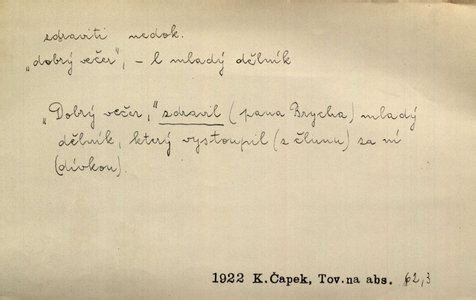 zdraviti nedok.
„dobrý večer", – l mladý dělník
„Dobrý večer," zdravil (pana Brycha) mladý
dělník, který vystoupil (z člunu) za ní
(dívkou).
1922 K.Čapek, Tov.na abs. 62,3